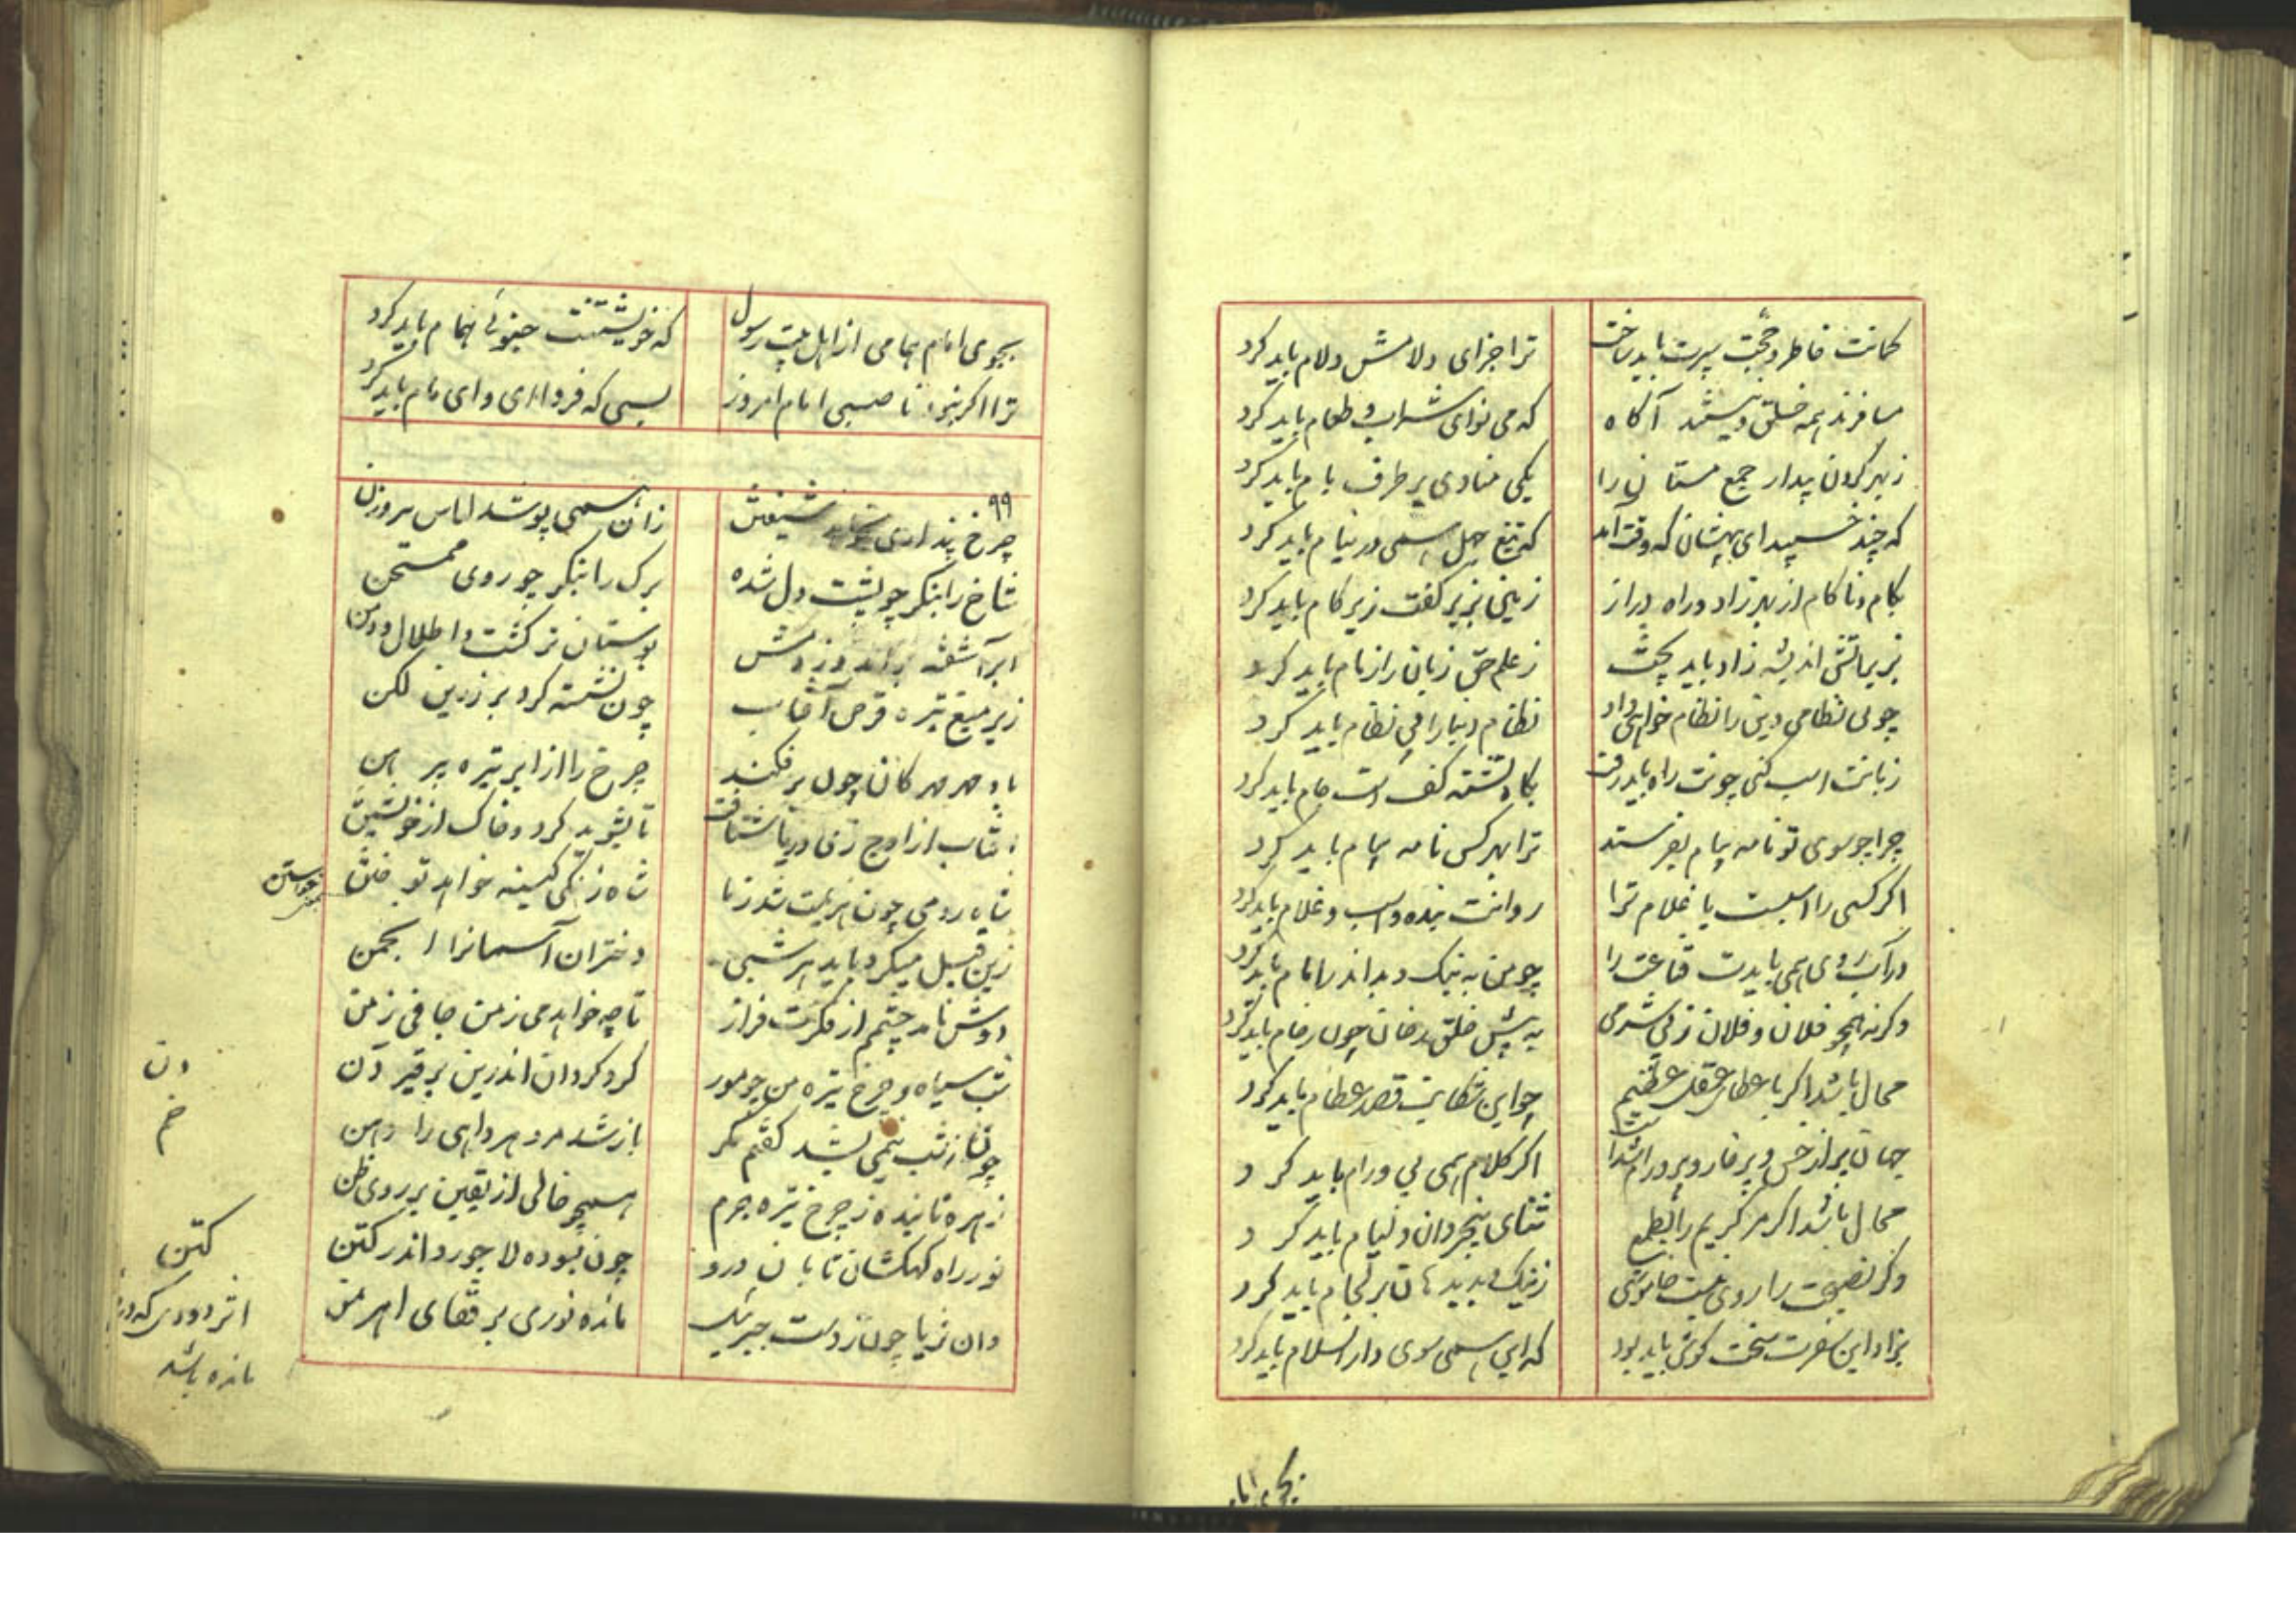 کمانت خاطر و حجت سپرت باید ساخت ترا جزای دلامش دلام باید کرد
مسافرند همه خلق و نیستند آگاه که می نوای شراب و طعام باید کرد
ز بهر کردن بیدار جمع مستان را یکی منادی بر طرف بام باید کرد
که چند خسپید ای بیهشان که وقت آمد که تیغ جهل همی در نیام باید کرد
بکام و ناکام از بهر زاد و راه دراز ز زین بزیر کفت زیر کام باید کرد
بزیر آتش اندیشه زاد باید پخت ز علم حق زبان را زمام باید کرد
چو بی نظامی دین را نظام خواهی داد نظام دنیا را بی نظام باید کرد
زبانت اسب کنی چونت راه باید رفت بگاه تشنه کف دست جام باید کرد
چرا چو سوی تو نامه پیام نفرستند ترا بهر کس نامه پیام باید کرد
اگر کسی را اسبست یا غلام ترا روانت بنده و اسب و غلام باید کرد
در آبروی همی بایدت قناعت را چو من به نیک و بد اندر امام باید کرد
وگر نه همچو فلان و فلان ز بی شرمی به پیش خلق بدخان چون رخام باید کرد
محال باشد اگر با عطای عقل عظیم جوابین شکایت قصد عطام باید کرد
جهان پر از خس و پر خار و پر ورام شداست اگر کلام همی بی ورام باید کرد
محال باشد اگر مر کریم را بطمع ثنای بیخردان و لئام باید کرد
وگر نصیحت را روی نیست خاموشی ز نیک و بد بدهان بر لجام باید کرد
بزاد این سفرت سخت کوش باید بود که این همی سوی دارالسلام باید کرد
بجوی امام
بجوی امام همامی از اهل بیت رسول که خویشتنت چنو بی همام باید کرد
ترا اگر نبود ناصبی امام امروز بسی که فردا ای وای مام باید کرد
۹۹
چرخ پنداری بخواهد شیفتن زان همی پوشد لباس پر وزن
شاخ را بنگر چو پشت دل شده برگ را بنگر چو روی ممتحن
ابر آشفته برآمد وز دمش بوستان تر گشت و اطلال و دمن
زیر میغ تیره قرص آفتاب چون نشسته گرد بر زرین لگن
باد مهر مهرگان چون بر فکند چرخ را از ابر تیره پیرهن
آفتاب از اوج زی دریا شتافت تا بشوید گرد و خاک از خویشتن
شاه رومی چون هزیمت شد ز ما شاه زنگی کینه خواهد توختن
توختن خواستن
زین قبل میکرد باید هر شبی دختران آسمان را انجمن
دوش نامد چشم از فکرت فراز تا چه خواهد می ز من جافی زمن
شب سیاه و چرخ تیره من چو مور گرد گردان اندرین پر قیر دن
دن
خم
چون از شب نیمی بشد گفتم مگر باز شد مر دهر داهی را دهن
زهره تابنده ز چرخ تیره جرم همچو خالی از یقین بر روی ظن
نور راه کهکشان تابان درو چون بسوده لاجورد اندر کتن
وان ثریا چون ز دست جبرئیل مانده نوری بر قفای اهرمن
کتن
اثر دودی که در
مانده باشد